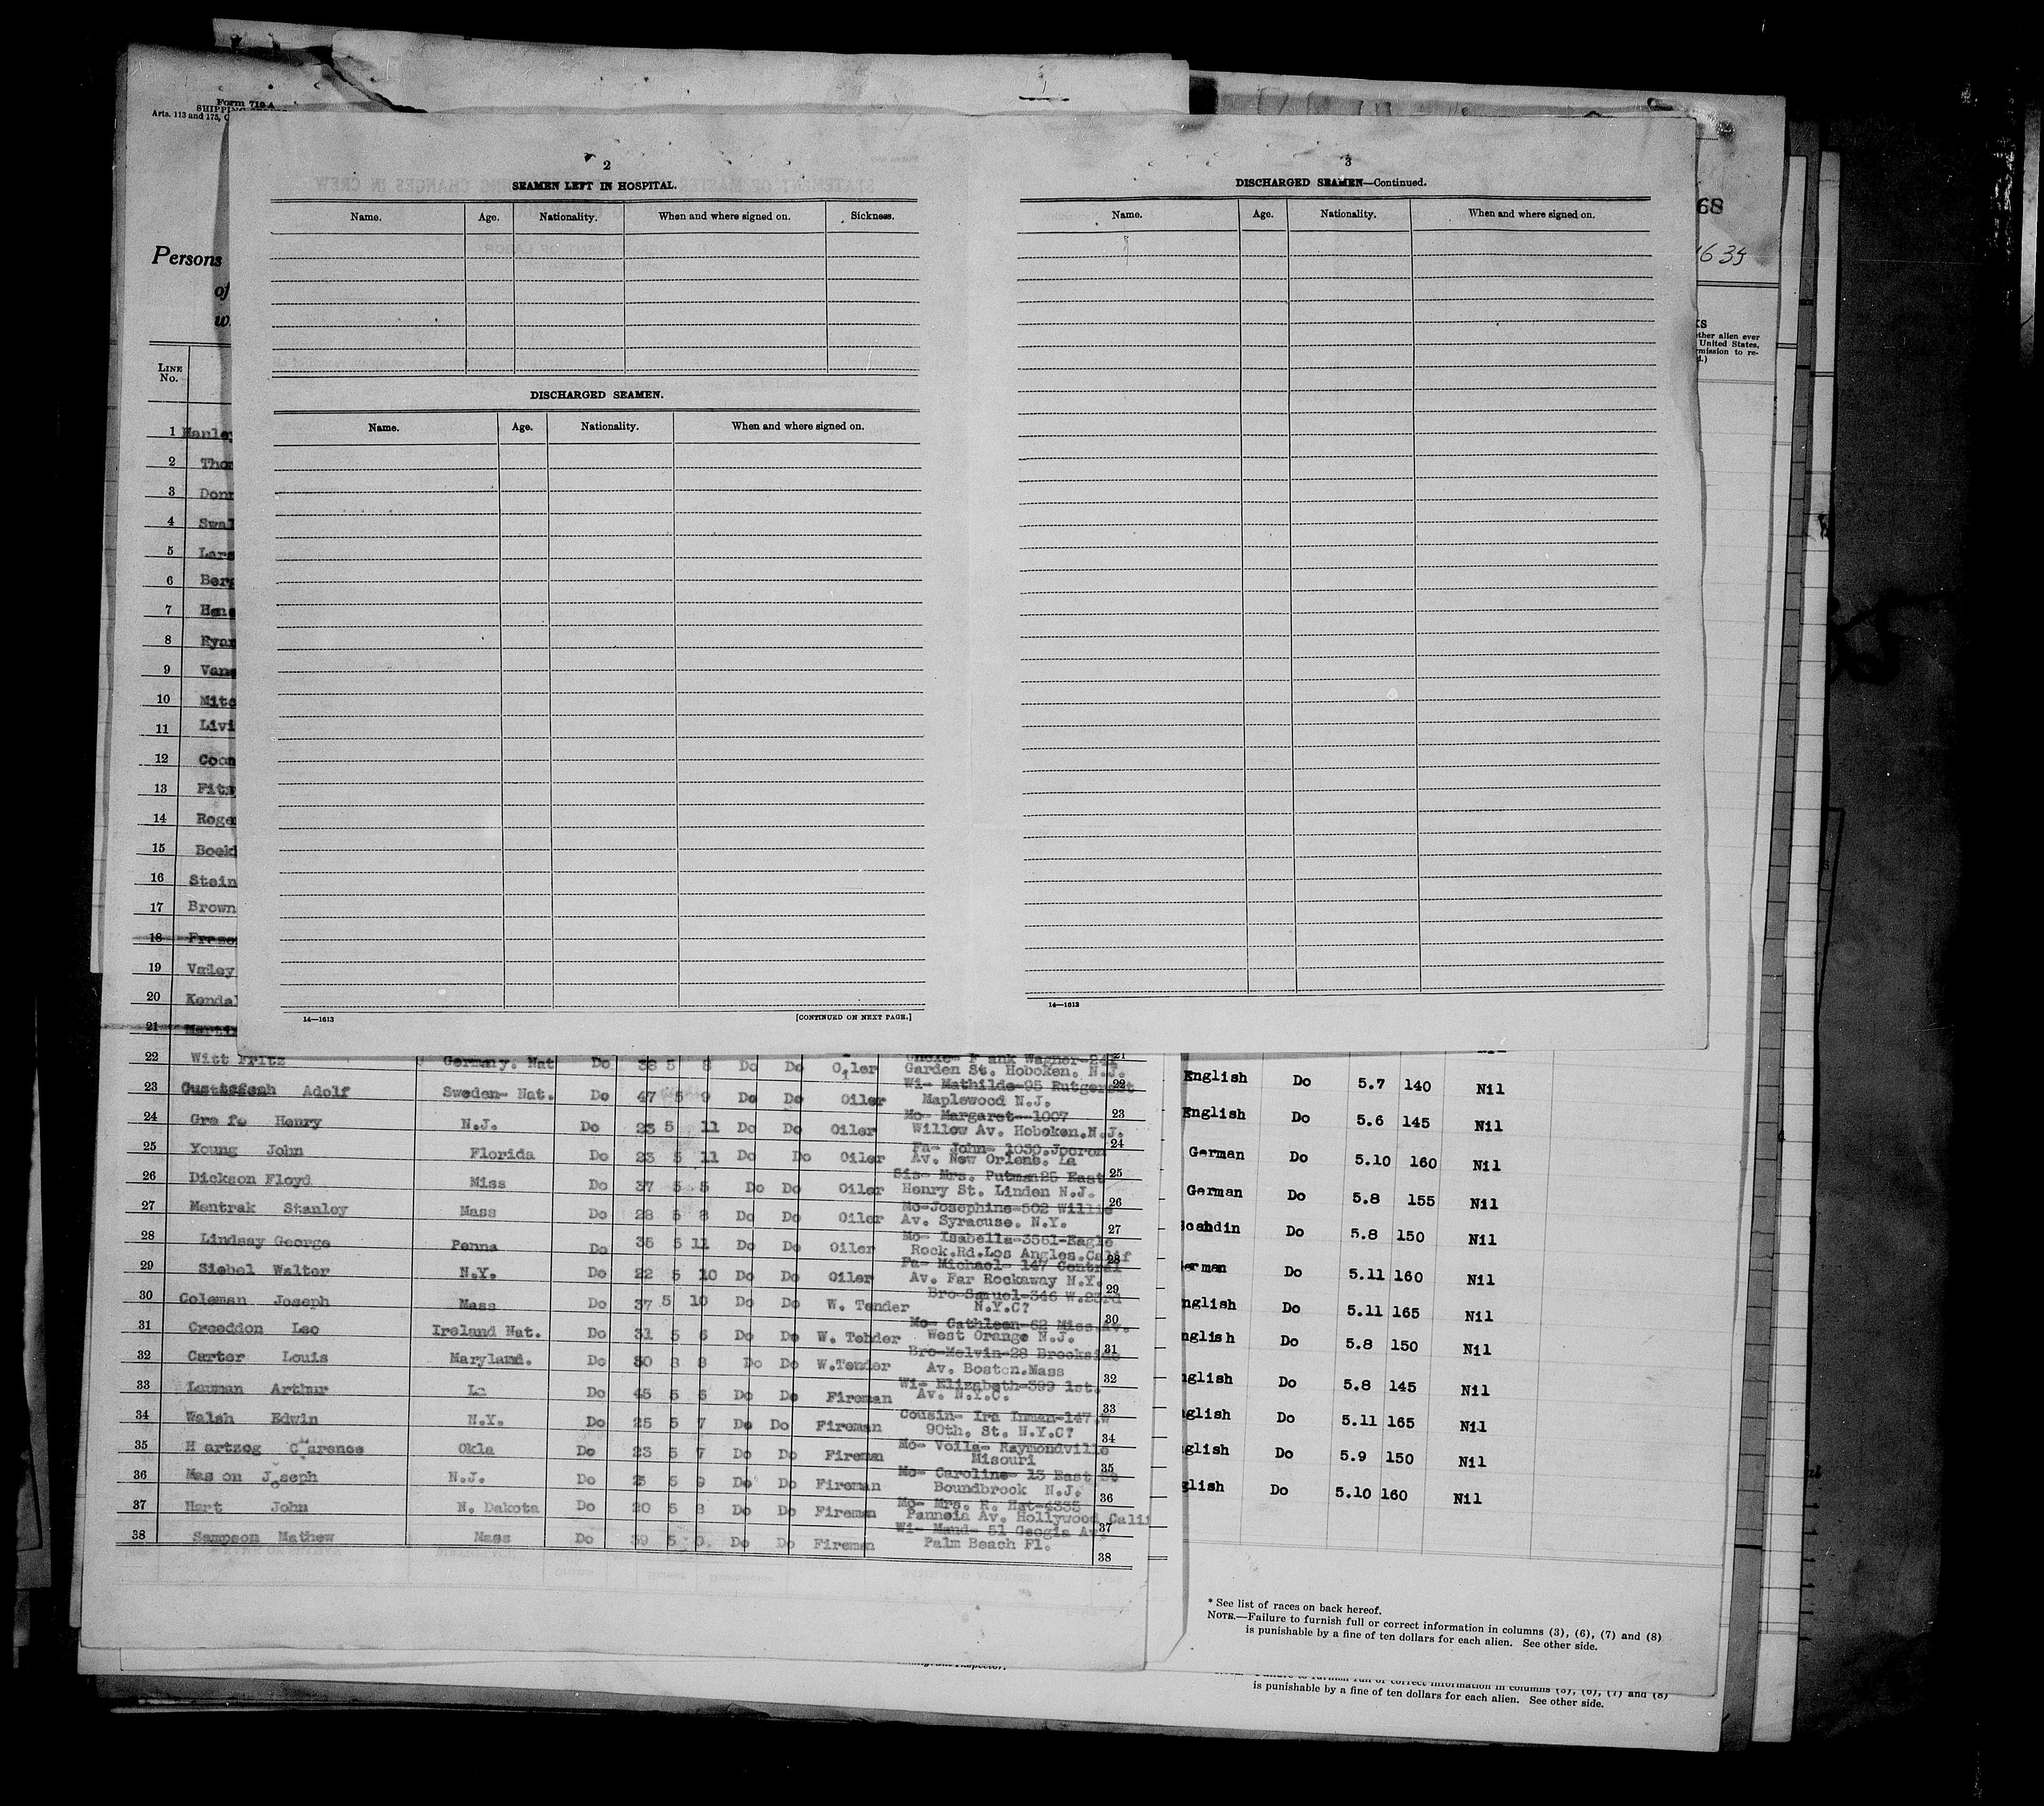 Form 710 A
Arts. 113 and 175,
68
1635
Persons
of
LINE
No.
ther alien ever
United States,
mission to re-
2
SEAMEN LEFT IN HOSPITAL.
Name. Age. Nationality. When and where signed on. Sickness.
DISCHARGED SEAMEN.
Name. Age. Nationality. When and where signed on.
14—1613
[CONTINUED ON NEXT PAGE.]
3
DISCHARGED SEAMEN—Continued.
Name. Age. Nationality. When and where signed on.
14—1613
1 Hanley
2 Thom
3 Donn
4 Swal
5 Lars
6 Berg
7 Hene
8 Ryan
9 Vane
10 Mitc
11 Livi
12 Coon
13 Fitz
14 Roge
15 Boekh
16 Stein
17 Brown
18
19 Valey
20 Kendal
21 Martin
22 Witt Fritz Germany. Nat Do 38 5 8 Do Do Oiler Garden St. Hoboken. N.J.
23 Adolf Sweden- Nat. Do 47 5 9 Do Do Oiler Wi- Mathilde-95 Rutgerst
Maplewood N.J.
24 Gra fe Henry N.J. Do 23 5 11 Do Do Oiler Mo- Margaret--1007
Willow Av. Hoboken.N.J.
25 Young John Florida Do 23 5 11 Do Do Oiler Fa- John-
Av. New Orlens. La
26 Dickson Floyd Miss Do 37 5 5 Do Do Oiler Sis- Mrs. Putman25 East
Henry St. Linden N.J.
27 Mentrak Stanley Mass Do 28 5 8 Do Do Oiler Mo-Josephine-502 Willis
Av. Syracuse. N.Y.
28 Lindsay George Penna Do 35 5 11 Do Do Oiler Mo- Isabella-3561-Eagle
Rock.Rd.Los Angles.Calif
29 Siebel Walter N.Y. Do 22 5 10 Do Do Oiler Fa- Michael- 147 Central
Av. Far Rockaway N.Y.
30 Coleman Joseph Mass Do 37 5 10 Do Do W. Tender Bro-Samuel-346 W.23rd
N.Y.C?
31 Creeddon Leo Ireland Nat. Do 31 5 6 Do Do W. Tender Mo- Cathleen-62 Miss.Av.
West Orange N.J.
32 Carter Louis Maryland. Do 50 8 8 Do Do W.Tender Bro-Melvin-28 Brookside
Av. Boston.Mass
33 Lauman Arthur La Do 45 5 6 Do Do Fireman Wi- Elizabeth-399 1st.
Av. N.Y.C.
34 Walsh Edwin N.Y. Do 25 5 7 Do Do Fireman Cousin- Ira Inman-147.W
90th. St. N.Y.C?
35 H artzog Clarence Okla Do 23 5 7 Do Do Fireman Mo- Voila- Raymondville
Misouri
36 Mas on Joseph N.J. Do 5 9 Do Do Fireman Mo- Caroline- 13 East St
Boundbrook N.J.
37 Hart John N. Dakota Do 20 5 8 Do Do Fireman Mo- Mrs. R. Hat-4335
Panneia Av. Hollywood Calif
38 Sampson Mathew Mass Do 39 5 Do Do Fireman Wi- Maud- 51 Geogia Av.
Palm Beach Fl.
21
22
23
24
25
26
27
28
29
30
31
32
33
34
35
36
37
38
English Do 5.7 140 Nil
English Do 5.6 145 Nil
German Do 5.10 160 Nil
German Do 5.8 155 Nil
Do 5.8 150 Nil
erman Do 5.11 160 Nil
nglish Do 5.11 165 Nil
nglish Do 5.8 150 Nil
nglish Do 5.8 145 Nil
nglish Do 5.11 165 Nil
glish Do 5.9 150 Nil
glish Do 5.10 160 Nil
* See list of races on back hereof.
NOTE.—Failure to furnish full or correct information in columns (3), (6), (7) and (8)
is punishable by a fine of ten dollars for each alien. See other side.
is punishable by a fine of ten dollars for each alien. See other side.